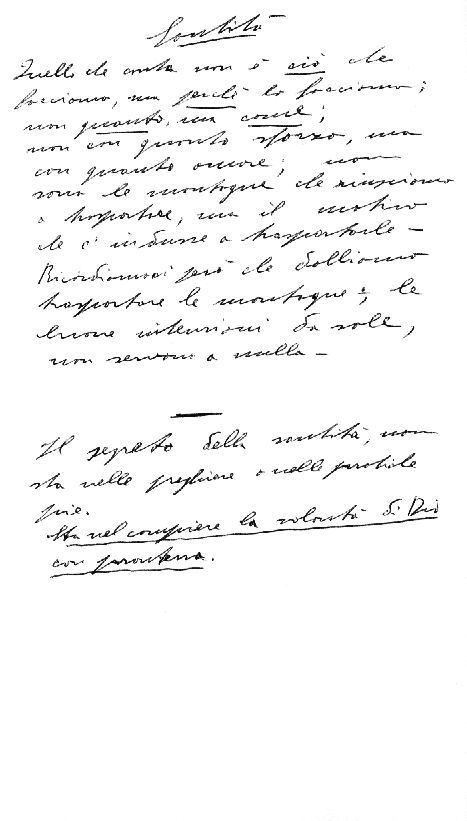 Santità
Quello che conta non è ciò che
facciamo, ma perché lo facciamo;
non quanto, ma come;
non con quanto sforzo, ma
con quanto amore; non
sono le montagne che riusciamo
a trasportare, ma il motivo
che c'indusse a trasportarle –
Ricordiamoci però che dobbiamo
trasportare le montagne; le
buone intenzioni da sole,
non servono a nulla –
Il segreto della santità, non
sta nelle preghiere o nelle pratiche
pie.
Sta nel compiere la volontà di Dio
con prontezza.